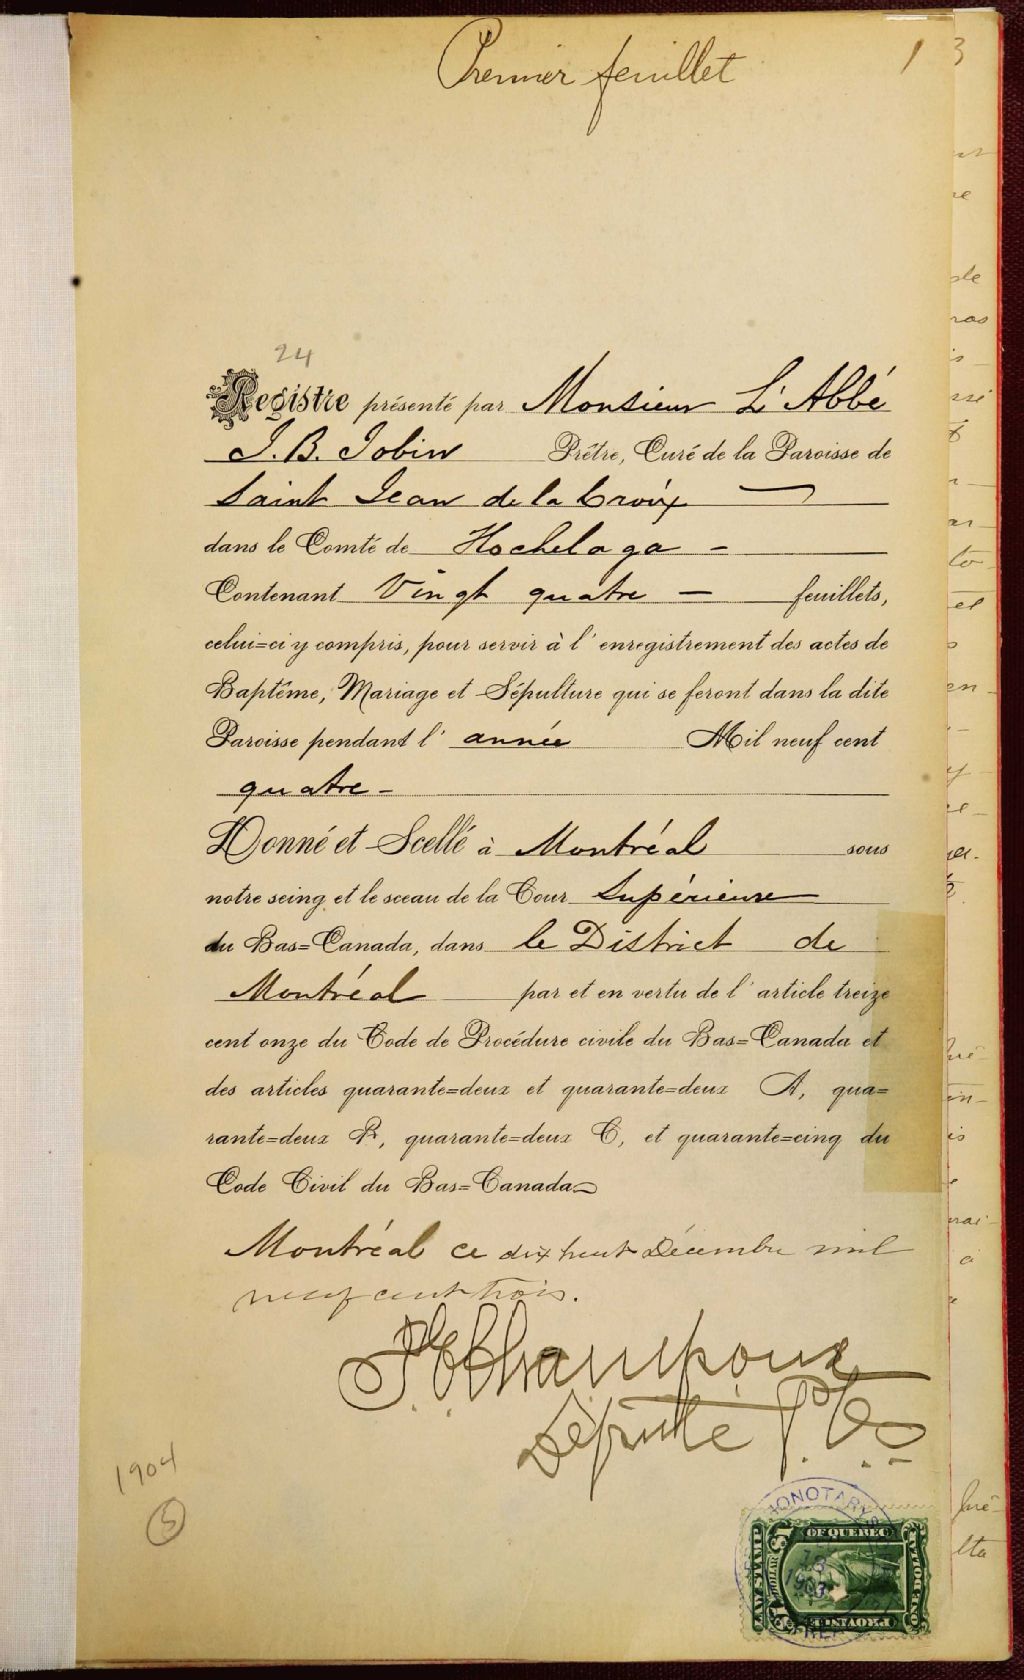 Premier feuillet
1 3
24
Registre présenté par Monsieur L'Abbé
J. B. Jobin Prêtre, Curé de la Paroisse de
Saint Jean de la Croix
dans le Comté de Hochelaga -
Contenant Vingt quatre - feuillets,
celui=ci y compris, pour servir à l'enregistrement des actes de
Baptême, Mariage et Sépulture qui se feront dans la dite
Paroisse pendant l' année Mil neuf cent
quatre -
Donné et Scellé à Montréal sous
notre seing et le sceau de la Cour Supérieure
du Bas=Canada, dans le District de
Montréal par et en vertu de l'article treize
cent onze du Code de Procédure civile du Bas=Canada et
des articles quarante=deux et quarante=deux A, qua=
rante=deux B, quarante=deux C, et quarante=cinq du
Code Civil du Bas=Canada
Montréal ce dix huit Décembre mil
neuf cent trois.
Champoux
Député P.C.S
1904
5
LAW STAMP
OF QUEBEC
PROVINCE
ONE DOLLAR
$1
18
1903